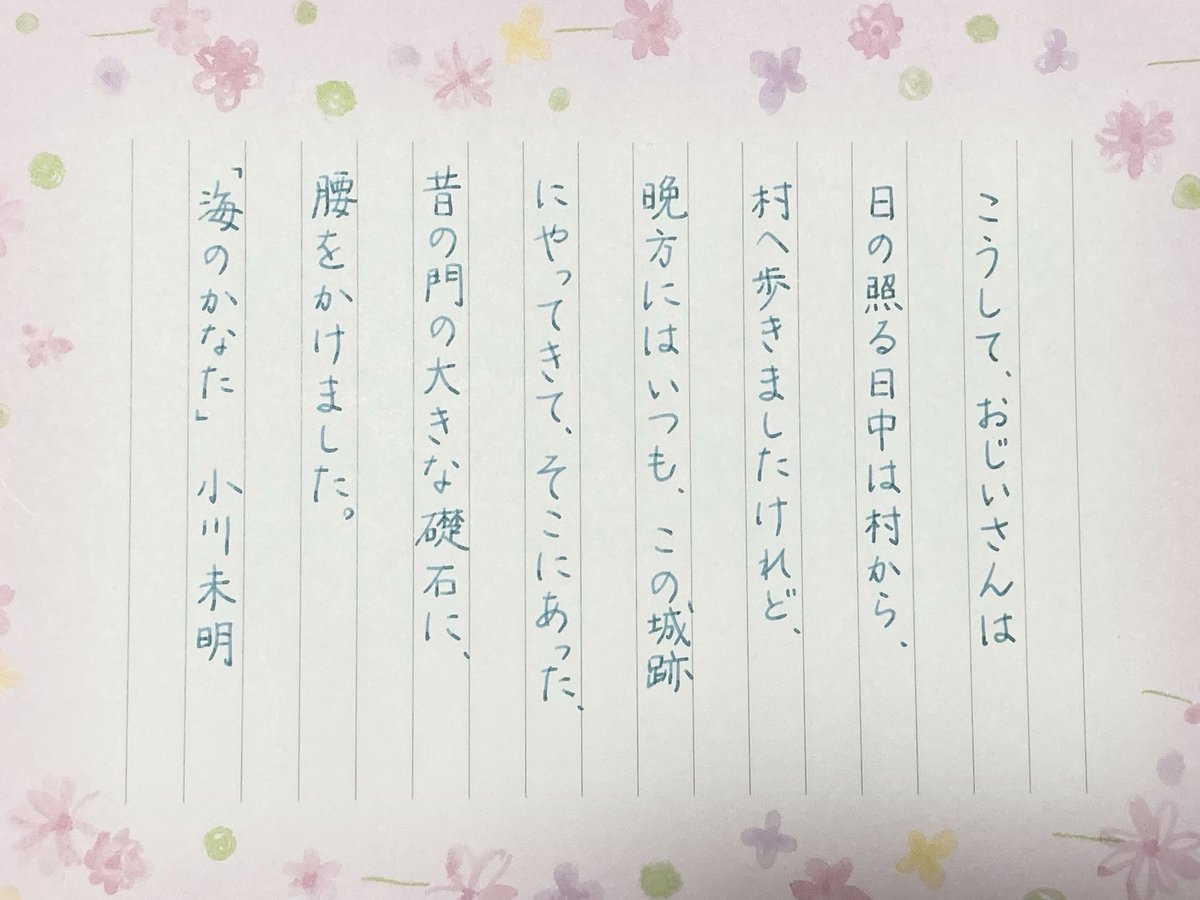 こうして、おじいさんは
日の照る日中は村から、
村へ歩きましたけれど、
晩方にはいつも、この城跡
にやってきて、そこにあった、
昔の門の大きな礎石に、
腰をかけました。
「海のかなた」 小川未明